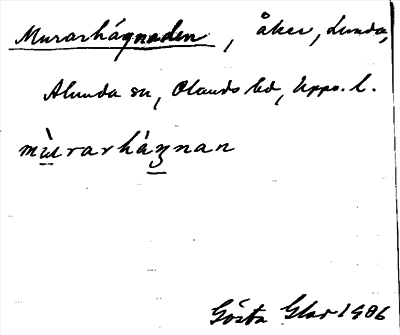 Murarhágnaden, åker, Lunda,
Alunda sn, Olands hd, Upps. l.
mùrarháʒnan
Gösta Glar 1906